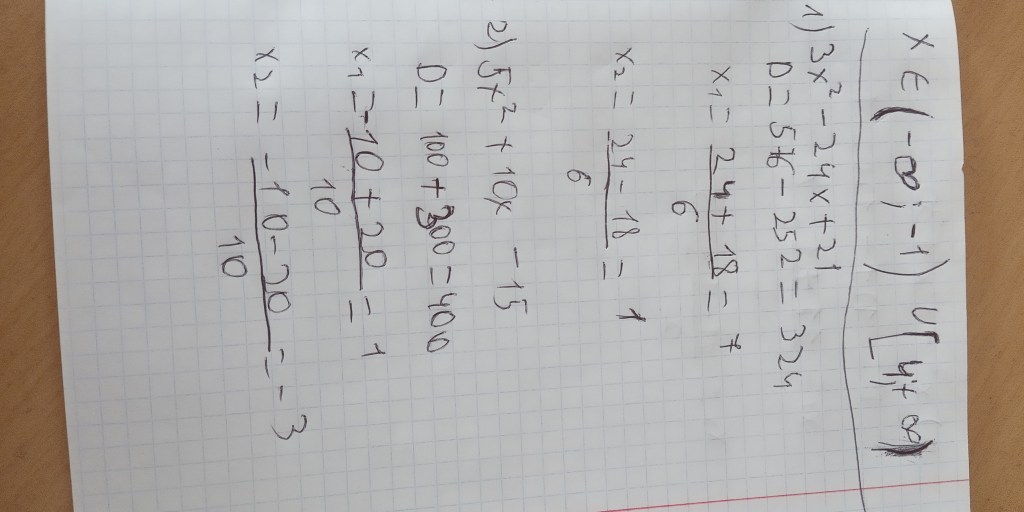 x ∈ (-∞; -1) ∪ [4; +∞)
1) 3x² - 24x + 21
D = 576 - 252 = 324
x₁ = (24 + 18)/6 = 7
x₂ = (24 - 18)/6 = 1
2) 5x² + 10x - 15
D = 100 + 300 = 400
x₁ = (-10 + 20)/10 = 1
x₂ = (-10 - 20)/10 = -3